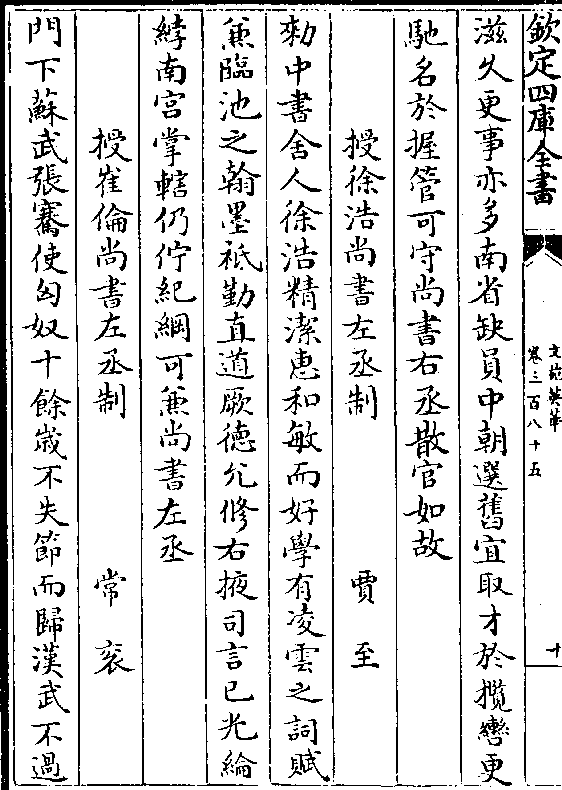 欽定四庫全書
文苑英華
卷三百八十五
十
滋久更事亦多南省缺員中朝選舊宜取才於攬轡更
馳名於握管可守尚書右丞散官如故
授徐浩尚書左丞制 賈至
勑中書舍人徐浩精潔惠和敏而好學有凌雲之詞賦
兼臨池之翰墨祗勤直道厥德允修右掖司言已光綸
綍南宫掌轄仍佇紀綱可兼尚書左丞
授崔倫尚書左丞制 常袞
門下蘇武張騫使匈奴十餘歳不失節而歸漢武不過